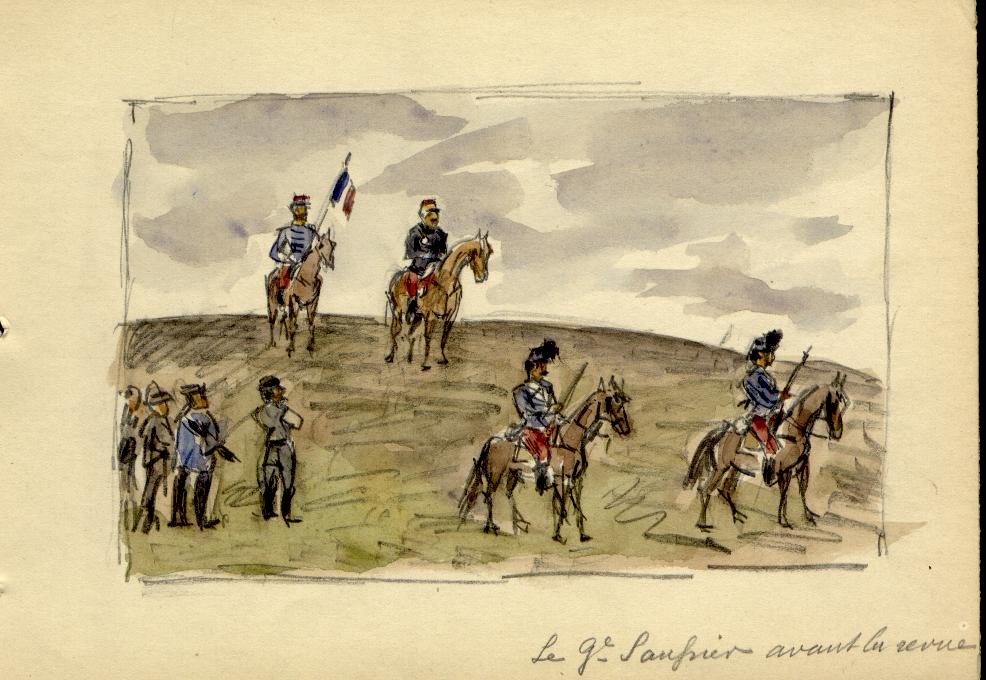 Le Gᵃˡ Saussier avant la revue